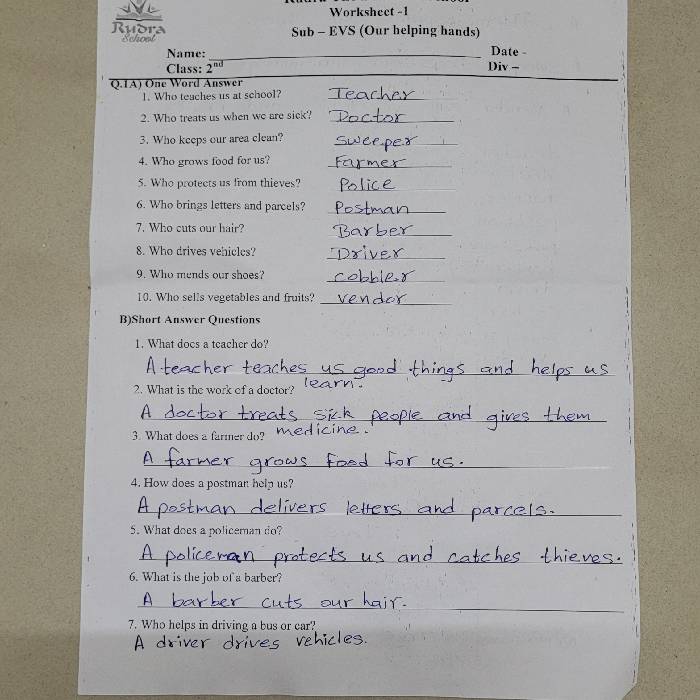 Rudra
School
Worksheet -1
Sub – EVS (Our helping hands)
Name: Date -
Class: 2nd Div –
Q.1A) One Word Answer
1. Who teaches us at school? Teacher
2. Who treats us when we are sick? Doctor
3. Who keeps our area clean? Sweeper
4. Who grows food for us? Farmer
5. Who protects us from thieves? Police
6. Who brings letters and parcels? Postman
7. Who cuts our hair? Barber
8. Who drives vehicles? Driver
9. Who mends our shoes? cobbler
10. Who sells vegetables and fruits? vendor
B)Short Answer Questions
1. What does a teacher do?
A teacher teaches us good things and helps us
learn.
2. What is the work of a doctor?
A doctor treats sick people and gives them
medicine.
3. What does a farmer do?
A farmer grows food for us.
4. How does a postman help us?
A postman delivers letters and parcels.
5. What does a policeman do?
A policeman protects us and catches thieves.
6. What is the job of a barber?
A barber cuts our hair.
7. Who helps in driving a bus or car?
A driver drives vehicles.